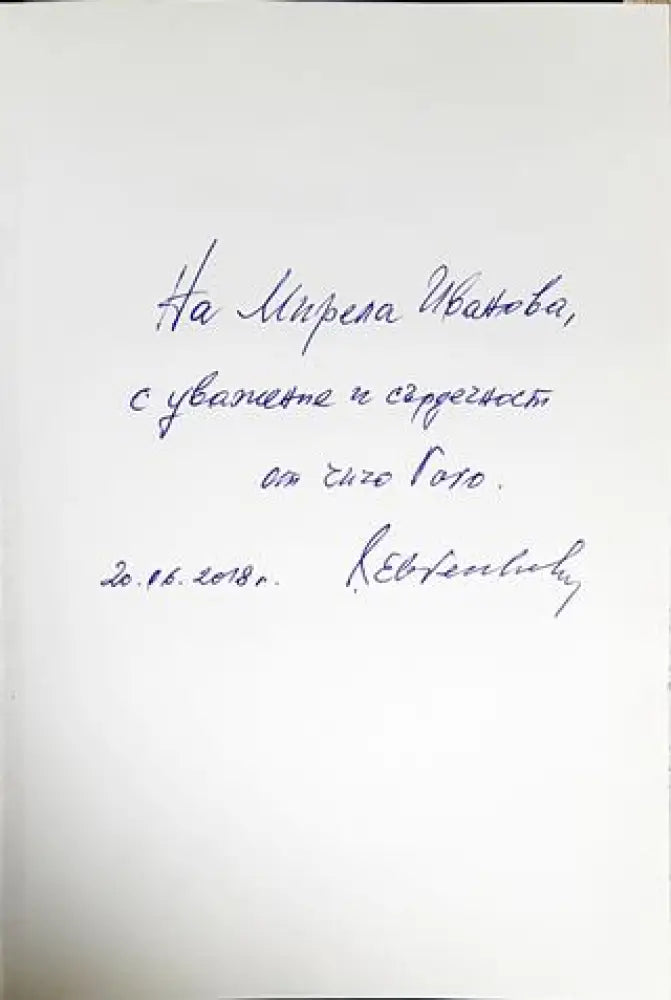 На Мирела Иванова,
с уважение и сърдечност
от чичо
20.06.2018 г.